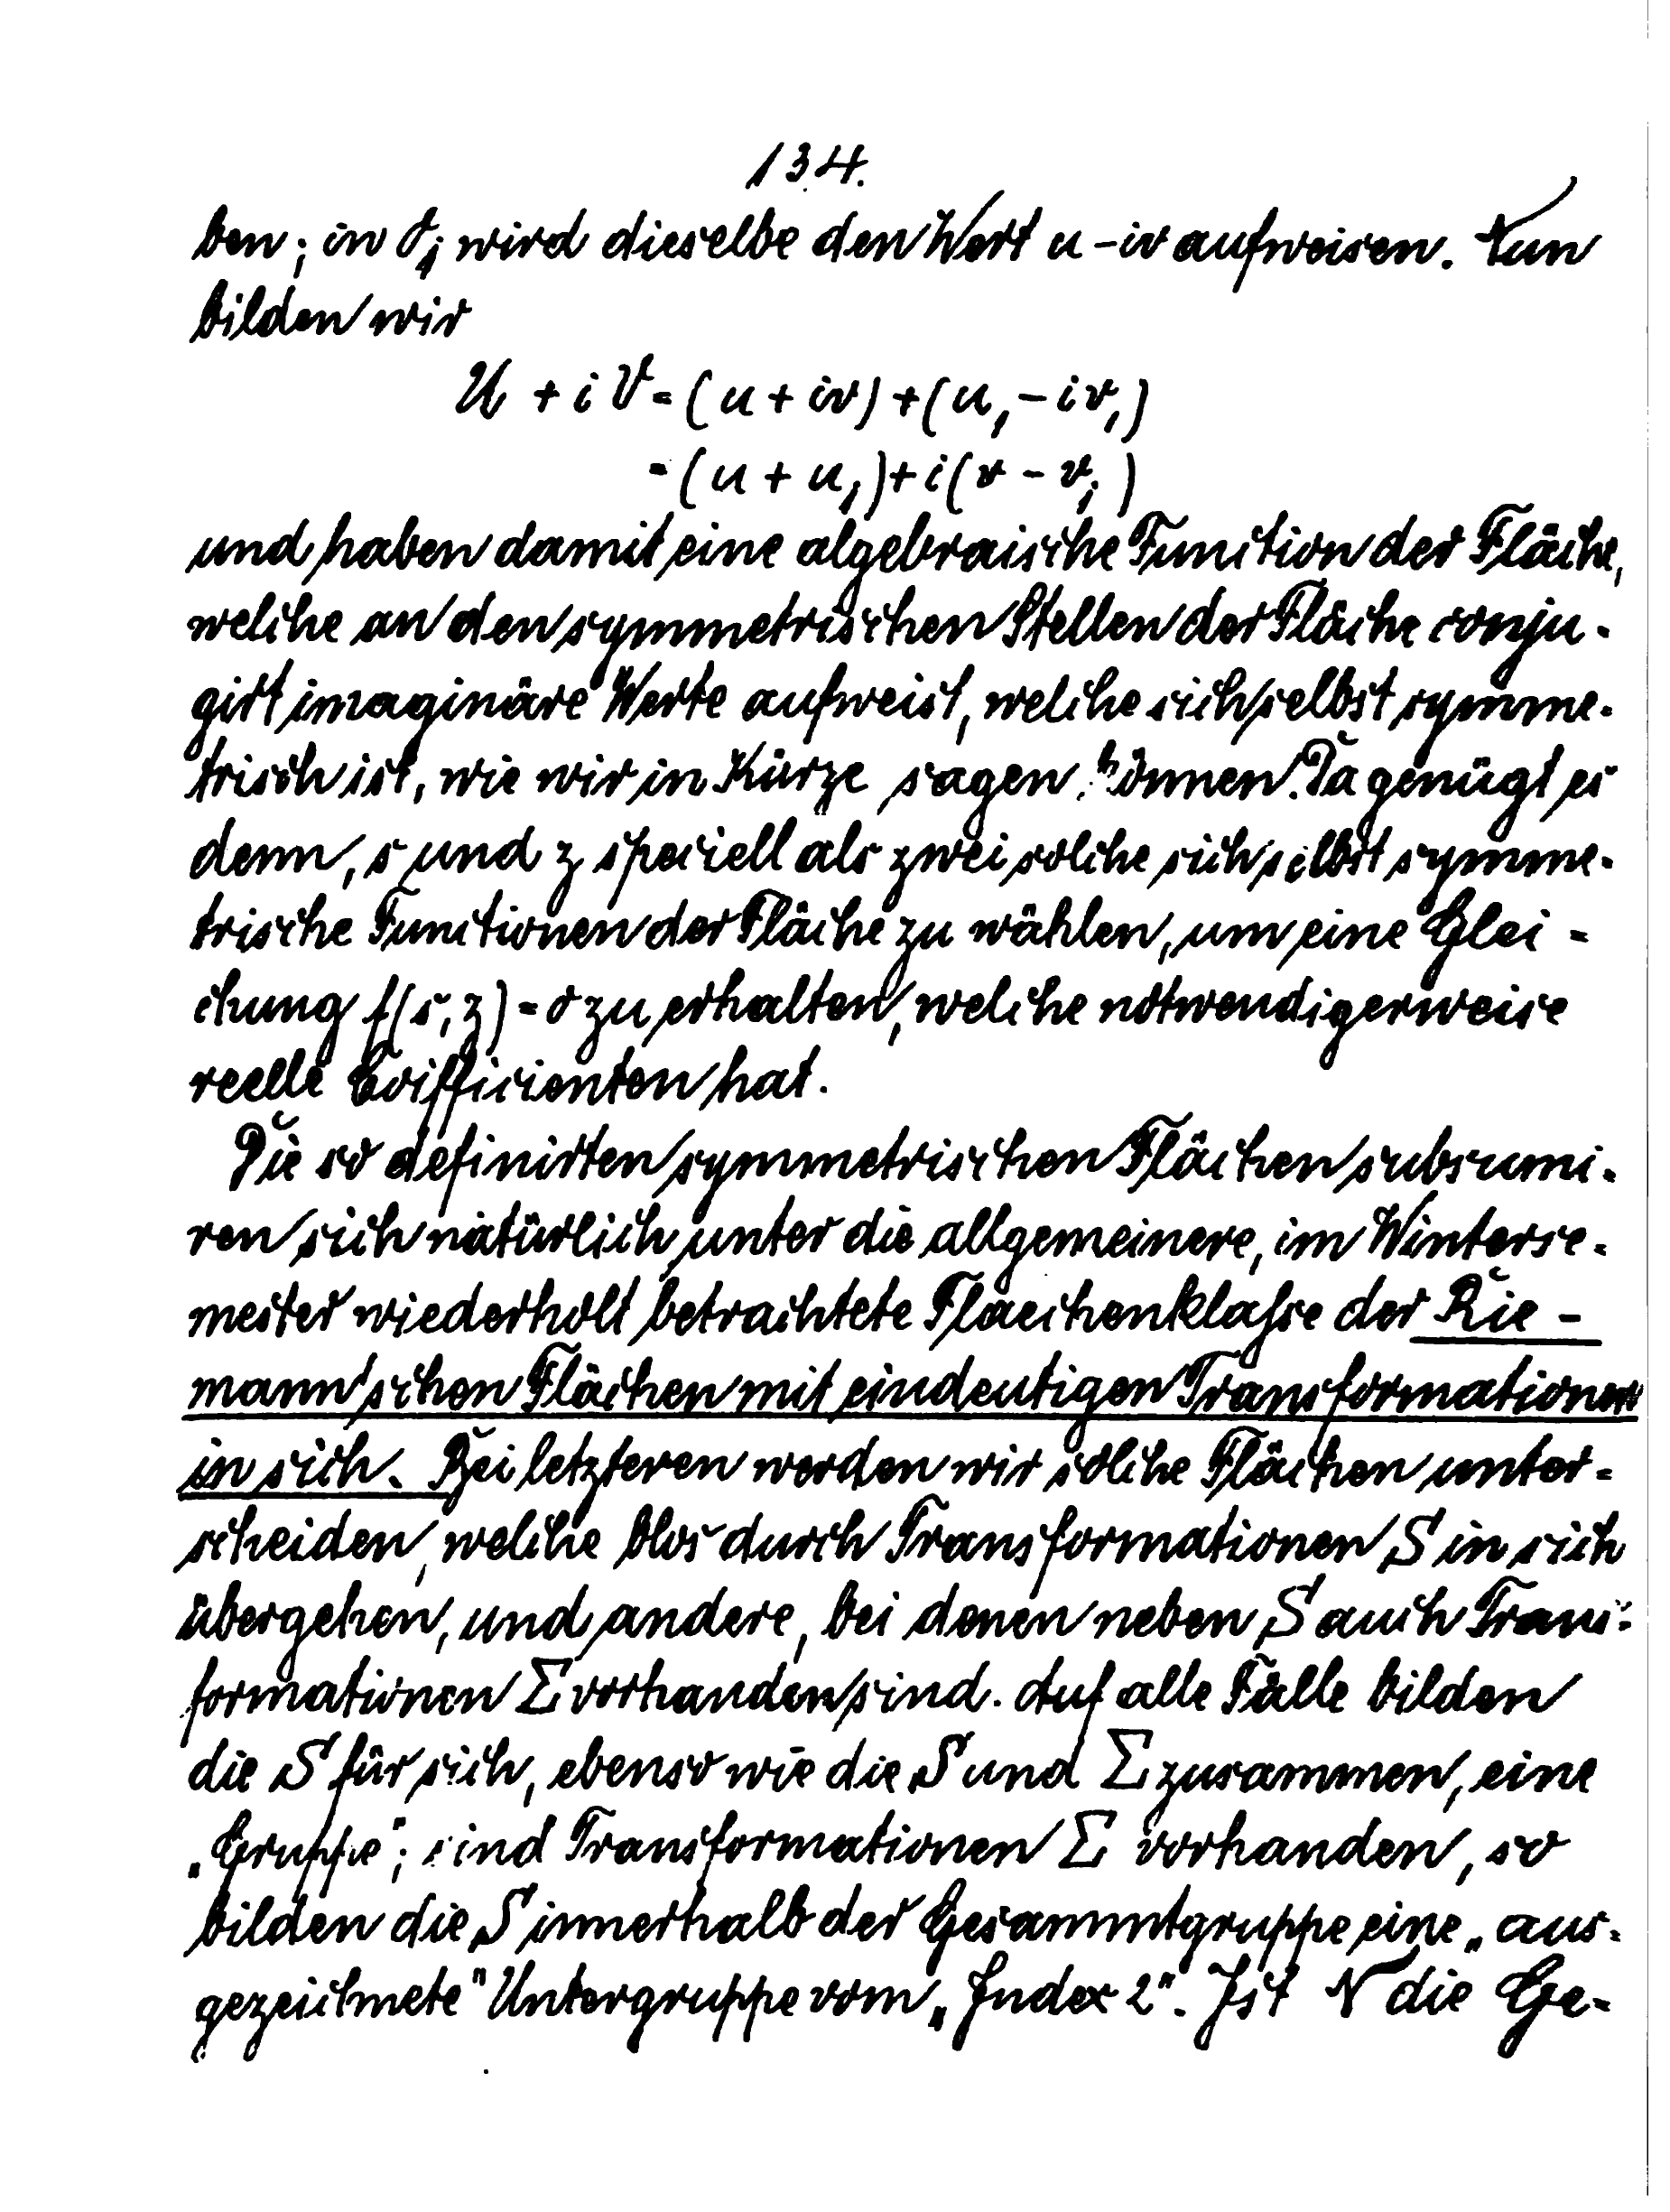 134.
ben; in O₁ wird dieselbe den Wert u - iv aufweisen. Nun
bilden wir
U + iV = (u + iv) + (u₁ - iv₁)
= (u + u₁) + i(v - v₁)
und haben damit eine algebraische Function der Fläche,
welche an den symmetrischen Stellen der Fläche conju-
girt imaginäre Werte aufweist, welche sich selbst symme-
trisch ist, wie wir in Kürze sagen können. Da genügt es
denn, s und z speciell als zwei solche sich selbst symme-
trische Functionen der Fläche zu wählen, um eine Glei-
chung f(s, z) = 0 zu erhalten, welche notwendigerweise
reelle Coifficienten hat.
Die so definirten symmetrischen Flächen subsumi-
ren sich natürlich unter die allgemeinere, im Winterse-
mester wiederholt betrachtete Flaechenklasse der Rie-
mann'schen Flächen mit eindeutigen Transformationen
in sich. Bei letzteren werden wir solche Flächen unter-
scheiden, welche blos durch Transformationen S in sich
übergehen, und andere, bei denen neben S auch Trans-
formationen Σ vorhanden sind. Auf alle Fälle bilden
die S für sich, ebenso wie die S und Σ zusammen, eine
„Gruppe"; sind Transformationen Σ vorhanden, so
bilden die S innerhalb der Gesammtgruppe eine „aus-
gezeichnete" Untergruppe vom „Index 2". Ist N die Ge-